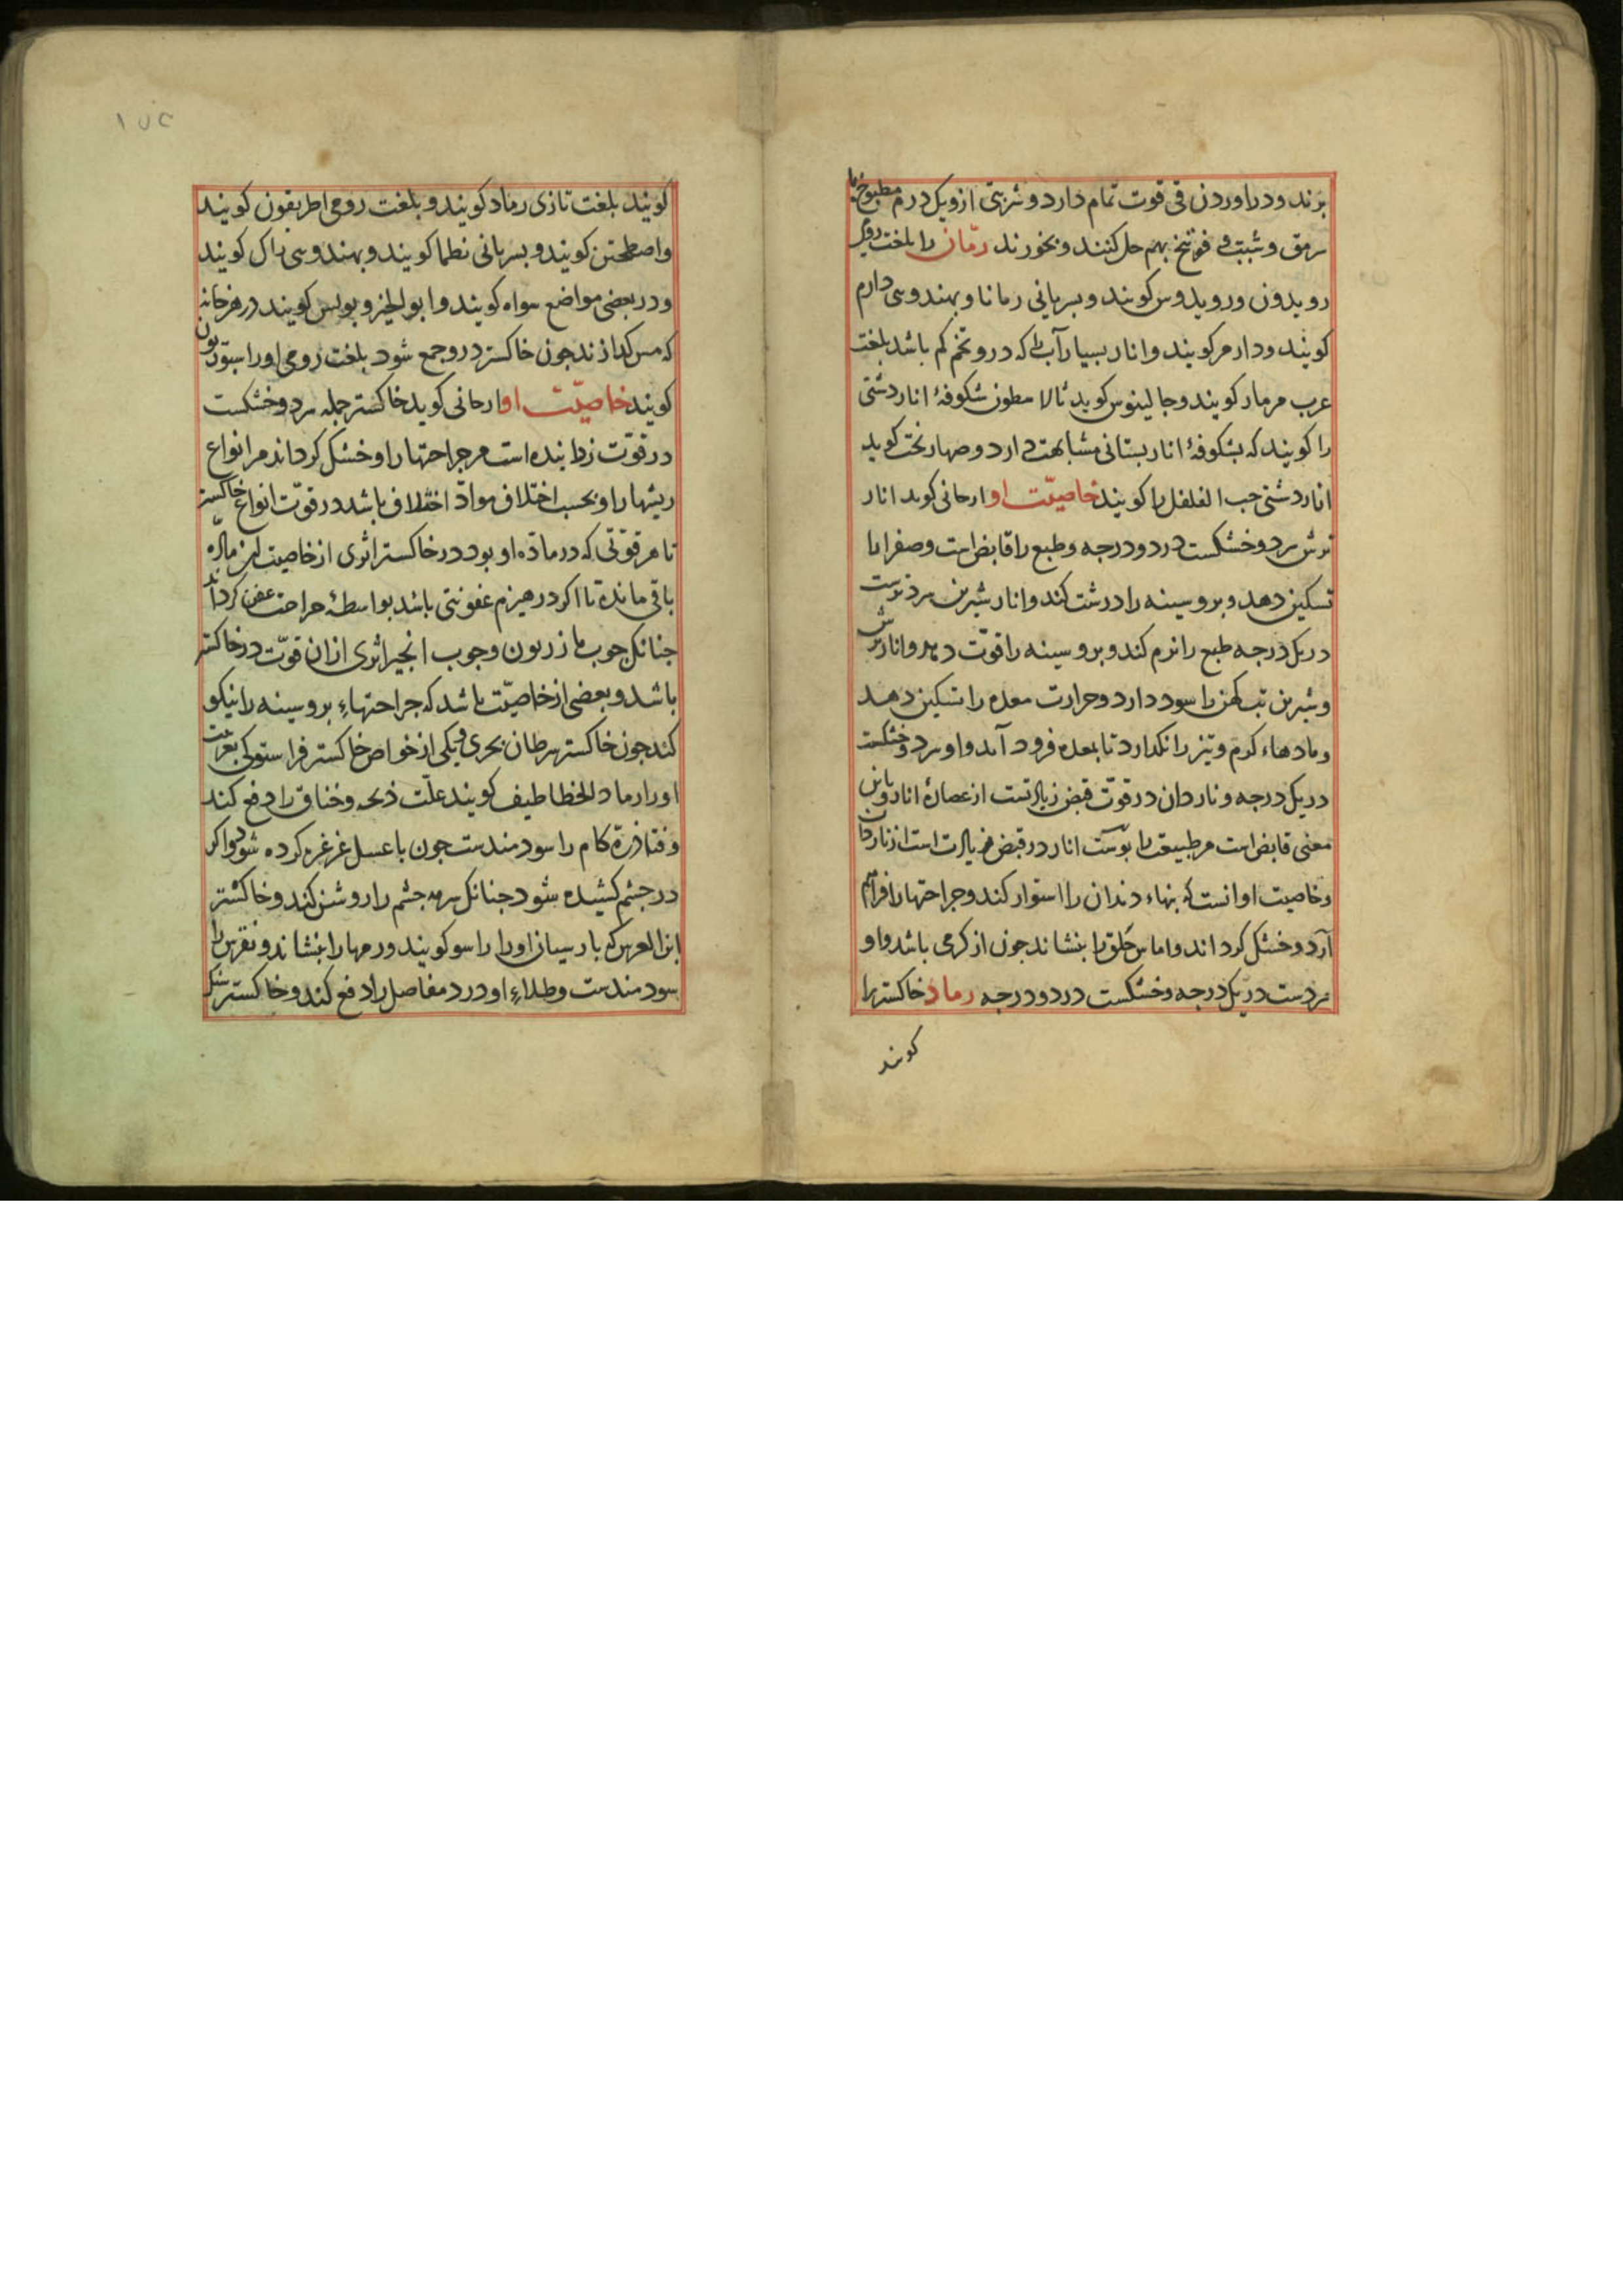 برند و در اوردن قی قوت تمام دارد و شربتی ازو یکدرم مطبوخ با
سرمق و شبت و فوتنج بهم حل کنند و بخورند رمّان را بلغت رومی
رویدون و رویدوس کویند و بسریانی رمانا و بهندوی دارم
کویند و دارمر کویند و انار بسیار آب را که درو تخم کم باشد بلغت
عرب مرماد کویند و جالینوس کوید ثالا مطون شکوفهٔ انار دشتی
را کویند که بشکوفهٔ انار بستانی مشابهت دارد و صهاربخت کوید
انار دشتی حب الفلفل را کویند خاصیّت او ارجانی کوید انار
ترش سرد و خشکست در دو درجه و طبع را قابض است و صفرا را
تسکین دهد و برو سینه را درشت کند و انار شیرین سرد ترست
در یک درجه طبع را نرم کند و برو سینه را قوّت دهد و انار ترش
و شیرین تب کهن را سود دارد و حرارت معده را تسکین دهد
و مادهاء کرم و تیز را نکدارد تا بمعده فرود آید و او سرد و خشکست
در یک درجه و ناردان در قوّت قبض زیادتست از عصارهٔ انار و باین
معنی قابض است مر طبیعت را پوست انار در قبض زیادت است از ناردان
و خاصیت او انست که بنهاء دندان را استوار کند و جراحتها را فراهم
آرد و خشک کرداند و اماس حلق را بنشاند جون از کرمی باشد و او
سردست در یک درجه و خشکست در دو درجه رماد خاکستر را
کویند
کویند بلغت تازی رماد کویند و بلغت رومی اطریقون کویند
و اصطحتن کویند و بسریانی نطما کویند و بهندوی راک کویند
و در بعضی مواضع سواه کویند و ابو الخیر و بولس کویند در هر خانه
که مس کدازند جون خاکستر درو جمع شود بلغت رومی او را اسبودیون
کویند خاصیّت او ارجانی کوید خاکستر جمله سرد و خشکست
در قوّت زداینده است مر جراحتها را و خشک کرداند مر انواع
ریشها را و بحسب اختلاف موادّ اختلاف باشد در قوّت انواع خاکستر
تا هر قوّتی که در مادّه او بود در خاکستر اثری از خاصیت این مادّه
باقی مانده تا اکر در هیزم عفونتی باشد بواسطهٔ حراحت عفن کرداند
جنانک جوب مازریون و جوب انجیر اثری ازان قوّت در خاکستر
باشد و بعضی از خاصیّت باشد که جراحتهاء برو سینه را نیکو
کند جون خاکستر سرطان بحری و یکی از خواص خاکستر فراستوک که بعربیت
او را رماد الخطاطیف کویند علّت ذبحه و خناق را دفع کند
و فتادن کام را سودمندست جون با عسل غرغره کرده شود و اکر
در جشم کشیده شود جنانک سرمه جشم را روشن کند و خاکستر
ابن العرس که بارسیان او را راسو کویند ورمها را بنشاند و نقرس را
سودمندست و طلاء او درد مفاصل را دفع کند و خاکستر